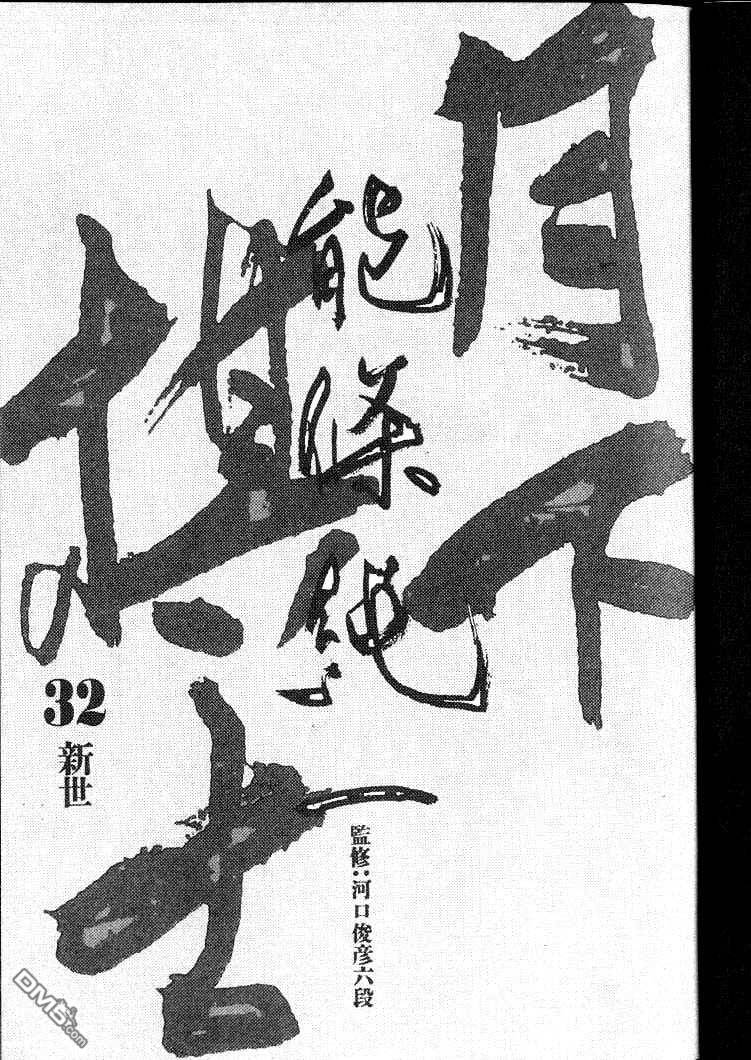 月下
棋士
能條純一
監修:河口俊彦六段
32
新世
DM5.com